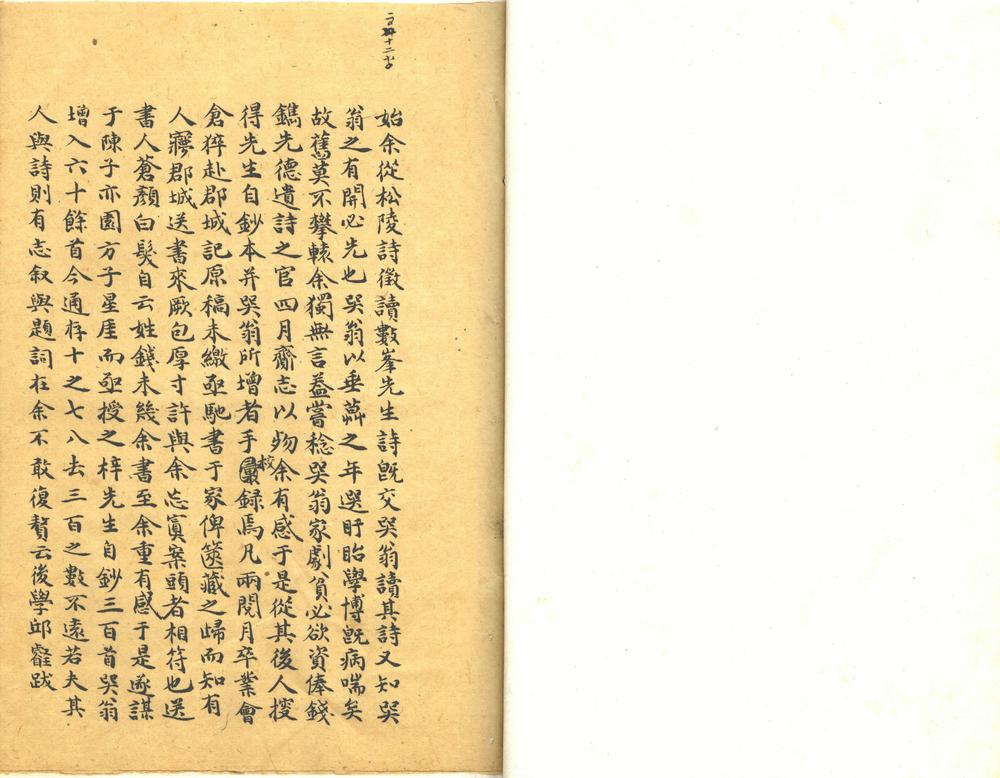 始余從松陵詩徵讀數峯先生詩旣交吳翁讀其詩又知吳
翁之有開必先也吳翁以垂暮之年選盱眙學博旣病喘矣
故舊莫不攀轅余獨無言蓋嘗稔吳翁家劇貧必欲資俸錢
鐫先德遺詩之官四月齎志以歿余有感于是從其後人搜
得先生自鈔本并吳翁所增者手校錄焉凡兩閱月卒業會
倉猝赴郡城記原稿未繳亟馳書于家俾篋藏之歸而知有
人寤郡城送書來厥包厚寸許與余忘寘案頭者相符也送
書人蒼顏白髮自云姓錢未幾余書至余重有感于是遂謀
于陳子亦園方子星厓而亟授之梓先生自鈔三百首吳翁
增入六十餘首今通存十之七八去三百之數不遠若夫其
人與詩則有志叙與題詞在余不敢復贅云後學邱璿跋